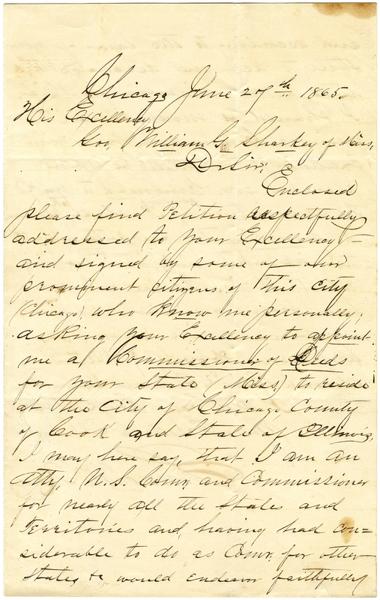 Chicago June 27th 1865.
His Excellency
Gov. William G. Sharkey of Miss,
Dr Sir;
Enclosed
please find Petition respectfully
addressed to your Excellency –
and signed by some of our
prominent citizens of this City
(Chicago) who know me personally,
asking your Excellency to appoint
me a Commissioner of Deeds
for your State (Miss) to reside
at the City of Chicago County
of Cook and State of Illinois,
I may here say, that I am an
Atty, U.S. Comr, and Commissioner
for nearly all the States and
Territories and having had con-
siderable to do as Comr, for other
States &c would endeavor faithfully